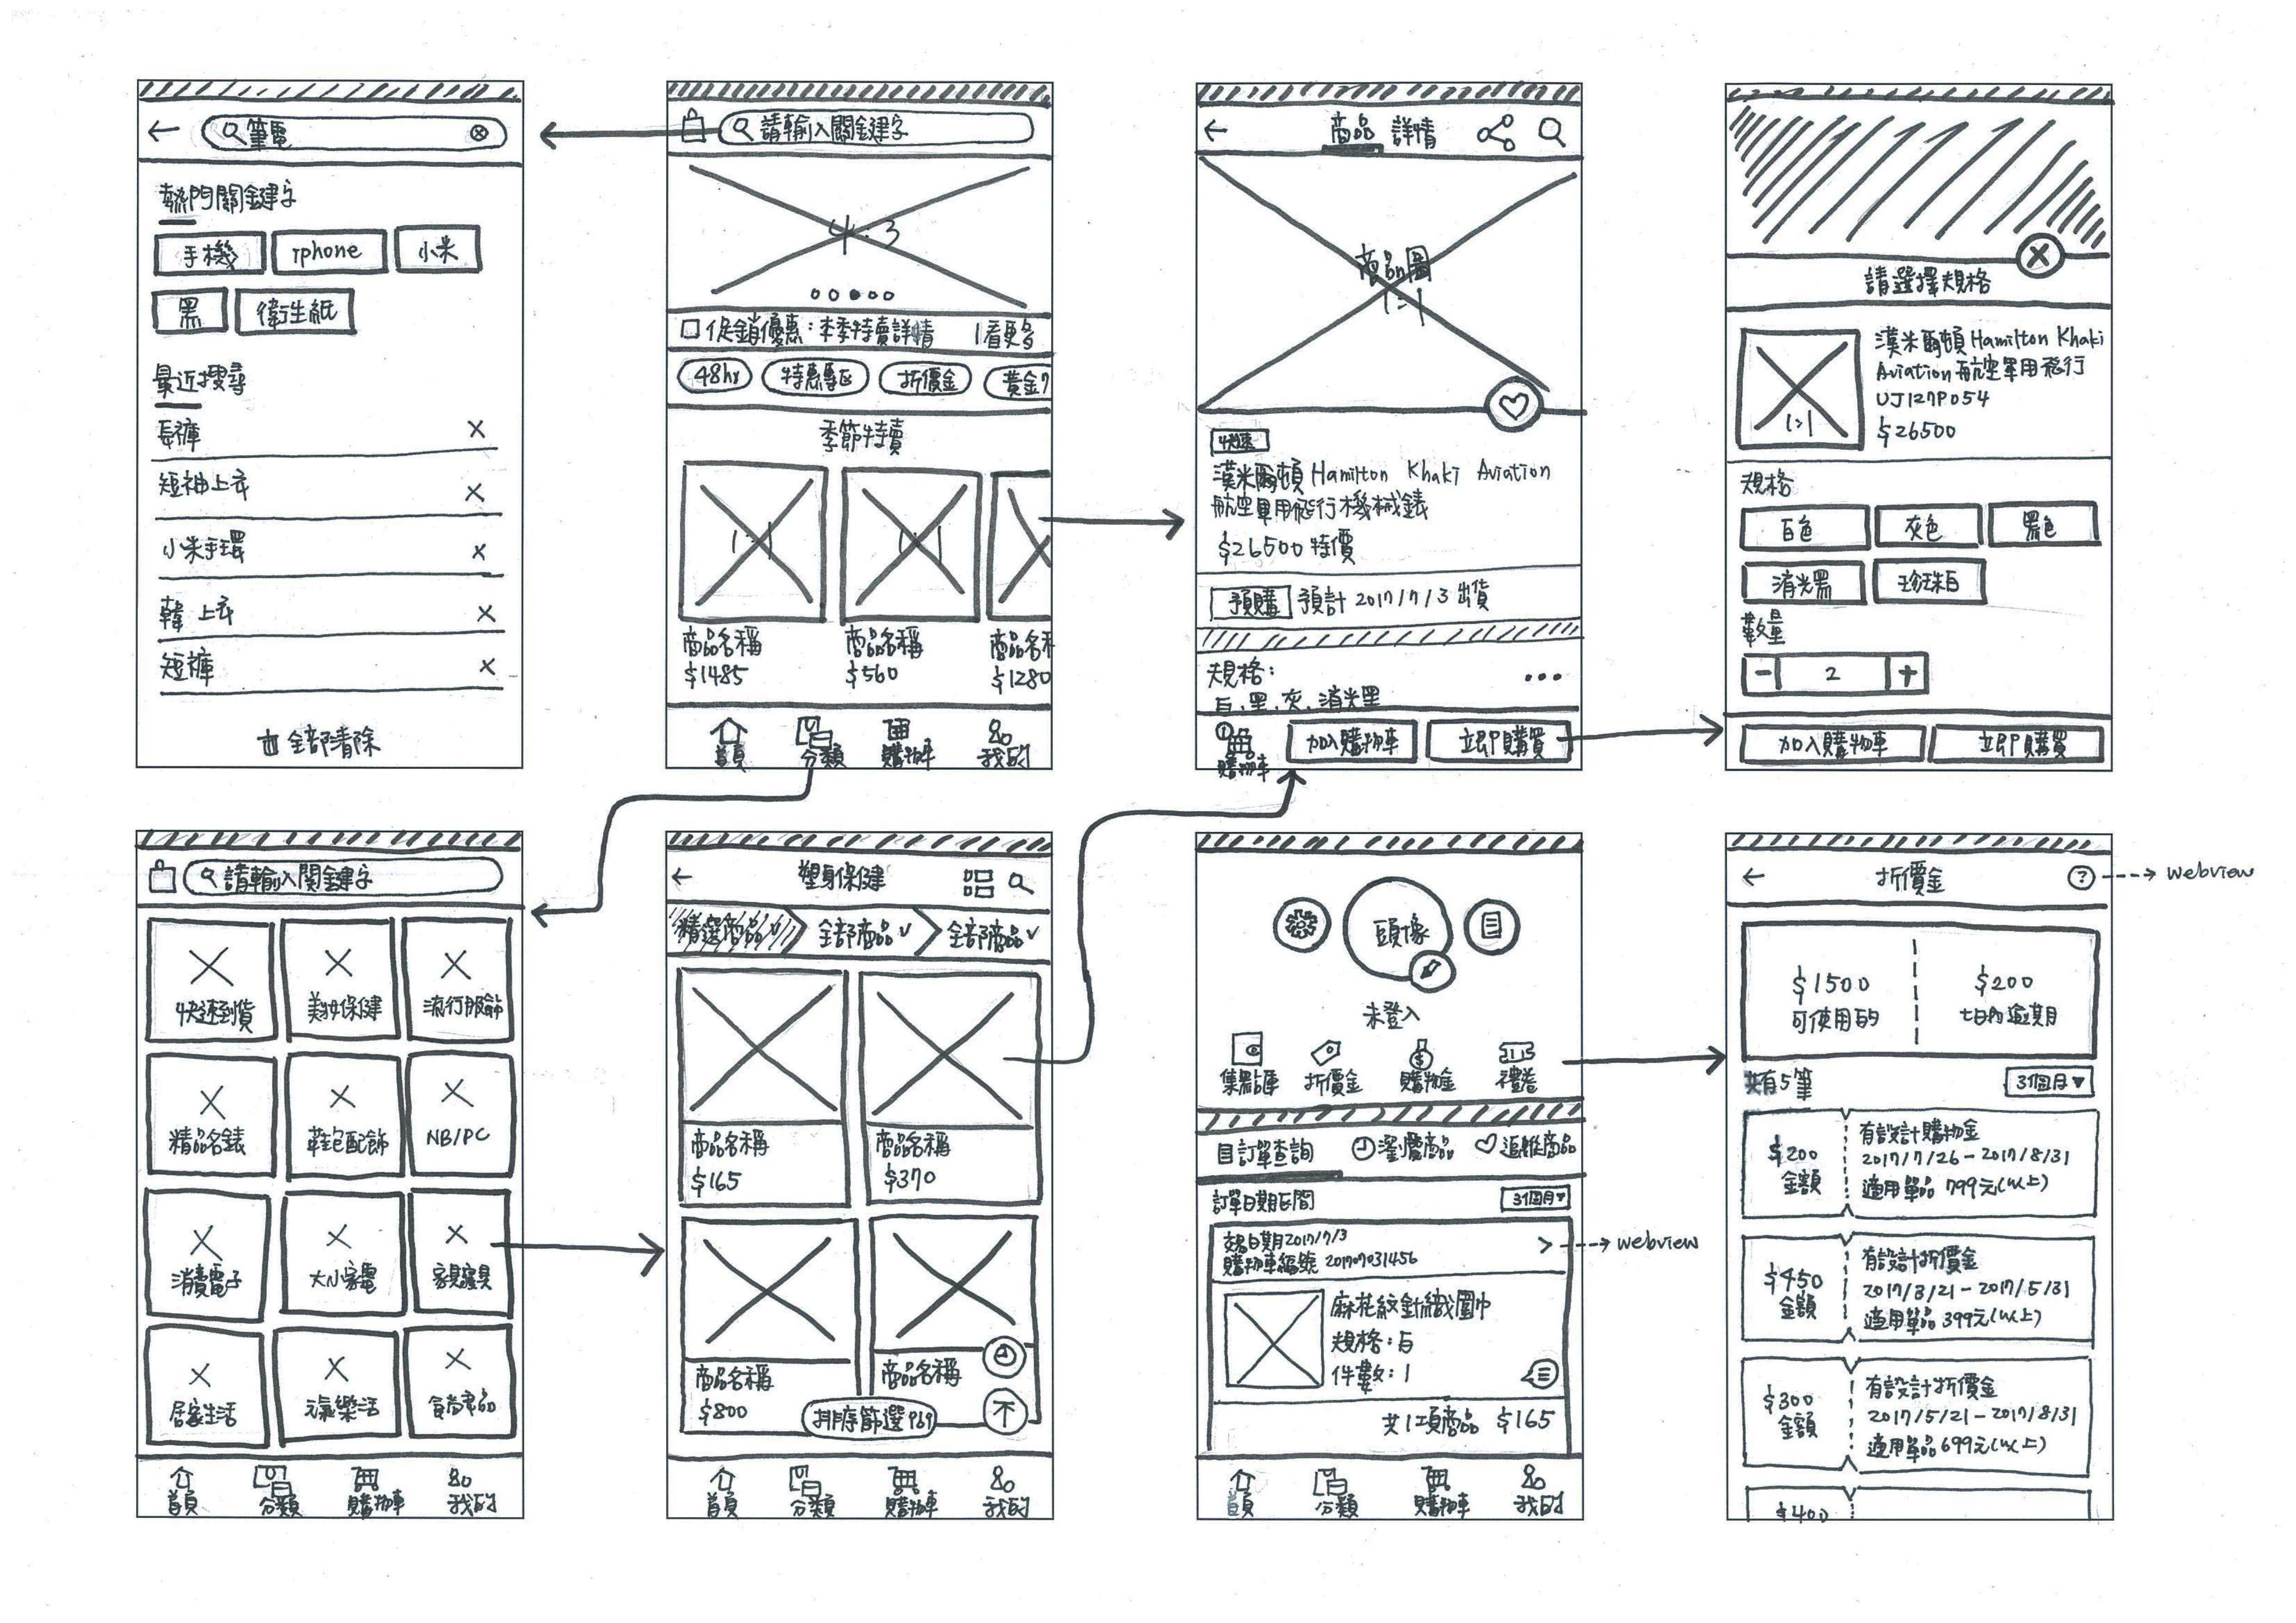 筆電
熱門關鍵字
手機 iphone 小米
黑 衛生紙
最近搜尋
長褲
短袖上衣
小米手環
韓 上衣
短褲
全部清除
請輸入關鍵字
4:3
促銷優惠:本季特賣詳情 |看更多
48hr 特惠專區 折價金 黃金7
季節特賣
1:1 1:1
商品名稱 商品名稱 商品名稱
$1485 $560 $1280
首頁 分類 購物車 我的
商品 詳情
商品圖
1:1
快速
漢米爾頓 Hamilton Khaki Aviation
航空軍用飛行機械錶
$26500 特價
預購 預計 2017/7/3 出貨
規格:
白、黑、灰、消光黑
購物車 加入購物車 立即購買
請選擇規格
漢米爾頓 Hamilton Khaki
Aviation 航空軍用飛行
UJ127P054
$26500
1:1
規格
白色 灰色 黑色
消光黑 珍珠白
數量
- 2 +
加入購物車 立即購買
請輸入關鍵字
快速到貨 美妝保健 流行服飾
精品名錶 鞋包配飾 NB/PC
消費電子 大小家電 家具寢具
居家生活 元氣樂活
首頁 分類 購物車 我的
塑身保健
精選商品 全部商品 全部商品
商品名稱 商品名稱
$165 $370
商品名稱 商品名稱
$800
排序篩選
首頁 分類 購物車 我的
頭像
未登入
折價金 購物金 禮卷
訂單查詢 瀏覽商品 追蹤商品
訂單日期區間 3個月
交易日期2017/7/3
購物車編號 201707031456
webview
麻花紋針織圍巾
規格:白
件數:1
共1項商品 $165
首頁 分類 購物車 我的
折價金 ? webview
$1500 $200
可使用的 七日內逾期
共有5筆 3個月
$200 金額
有設計購物金
2017/7/26-2017/8/31
適用單品 799元(以上)
$450 金額
有設計折價金
2017/3/21-2017/5/31
適用單品 399元(以上)
$300 金額
有設計折價金
2017/5/21-2017/8/31
適用單品 699元(以上)
$400